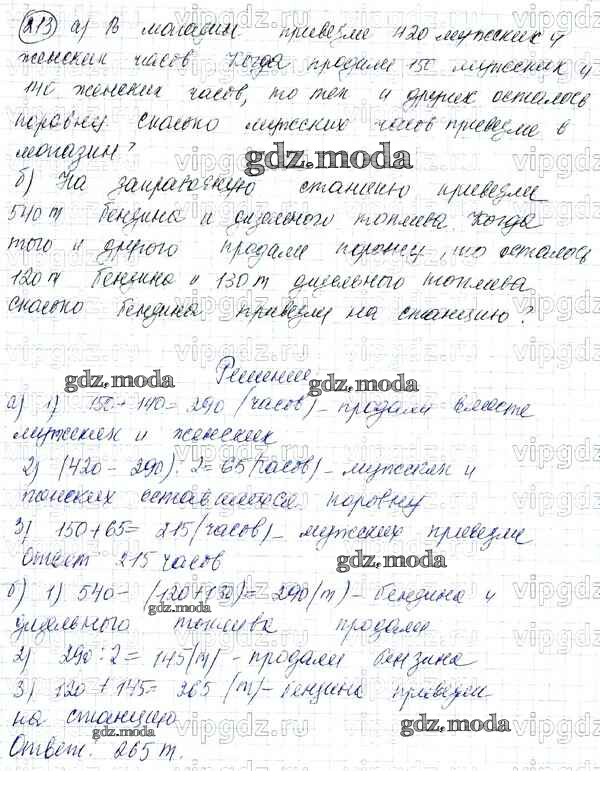 213) а) В магазин привезли 420 мужских и
женских часов. Когда продали 150 мужских и
140 женских часов, то тех и других осталось
поровну. Сколько мужских часов привезли в
магазин?
gdz.moda
б) На заправочную станцию привезли
540 т бензина и дизельного топлива. Когда
того и другого продали поровну, то осталось
120 т бензина и 130 т дизельного топлива
Сколько бензина привезли на станцию?
Решение
gdz.moda gdz.moda
а) 1) 150 + 140 = 290 (часов) - продали вместе
мужских и женских
2) (420 - 290) : 2 = 65 (часов) - мужских и
женских оставшихся поровну
3) 150 + 65 = 215 (часов) - мужских привезли
Ответ 215 часов
gdz.moda
б) 1) 540 - (120 + 130) = 290 (т) - бензина и
gdz.moda
дизельного топлива продали
2) 290 : 2 = 145 (т) - продали бензина
3) 120 + 145 = 265 (т) - бензина привезли
на станцию
gdz.moda gdz.moda
Ответ. 265 т.
vipgdz.ru